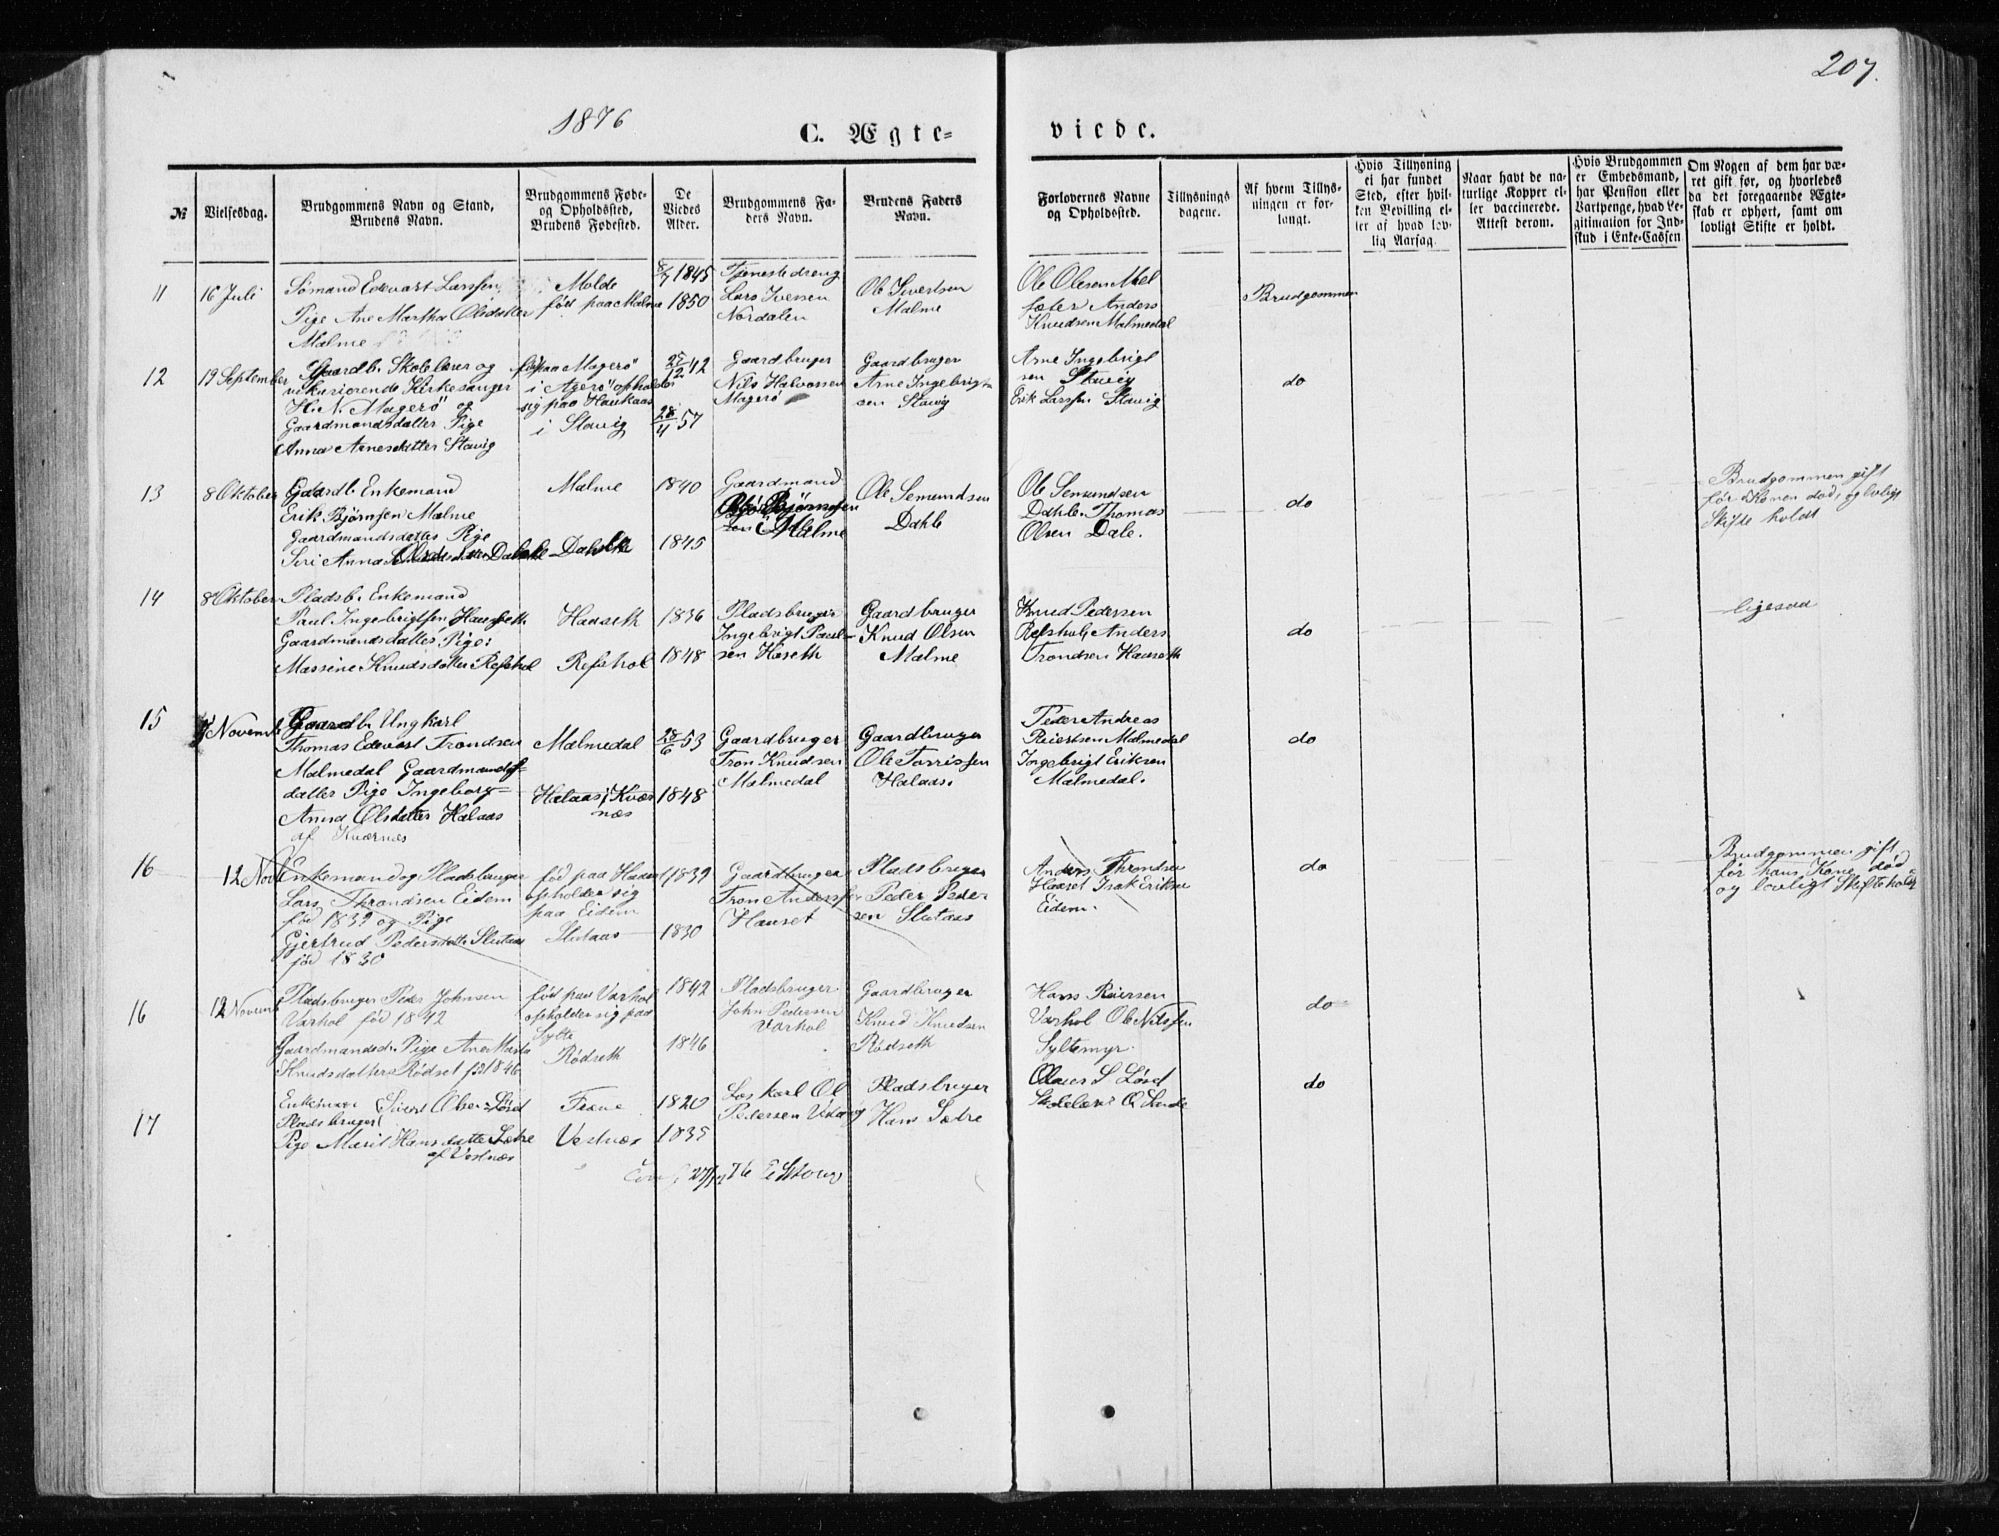 207.
1876
C. Ægte=
viede.
№
Vielsesdag.
Brudgommens Navn og Stand,
Brudens Navn.
Brudgommens Føde-
og Opholdssted,
Brudens Fødested.
De
Viedes
Alder.
Brudgommens Fa-
ders Navn.
Brudens Faders
Navn.
Forlovernes Navne
og Opholdssted.
Tillysnings
dagene.
Af hvem Tillys-
ningen er for-
langt.
Hvis Tillysning
ei har fundet
Sted, efter hvil-
ken Bevilling el-
ler af hvad lov-
lig Aarsag.
Naar havt de na-
turlige Kopper el-
ler vaccinerede.
Attest derom.
Hvis Brudgommen
er Embedsmand,
har Pension eller
Vartpenge, hvad Le-
gitimation for Ind-
skud i Enke-Cassen
Om Nogen af dem har væ-
ret gift før, og hvorledes
da det foregaaende Ægte-
skab er ophørt, samt om
lovligt Skifte er holdt.
11
16 Juli
Sømand Edevart Larssen
Pige Ane Martha Olsdatter
Malme
Molde
født paa Malme
8/7 1845
1850
Tjenestedreng
Lars Iversen
Nordalen
Ole Sivertsen
Malme
Ole Olesen Mæl
fæter Anders
Knudsen Malmedal
Brudgommen
12
19 September
Gaardb. Skolelærer og
vikarierende Kirkesanger
H. N. Magerö og
Gaardmandsdatter Pige
Anna Arnesdatter Stavig
født paa Magerö
i Agerö opholder
sig paa Haukaas
i Stavig
25/12 42
28/4 57
Gaardbruger
Nils Halvorsen
Magerö
Gaardbruger
Arne Ingebrigt
sen Stavig
Arne Ingebrigt
sen Stavig
Erik Larssen Stavig
do
13
8 Oktober
Gaardb. Enkemand
Erik Bjørnsen Malme
Gaardmandsdatter Pige
Siri Anna Olsdatter Dahle
Malme
Dahle
1840
1845
Gaardmand
Bjørnsen
Malme
Ole Semundsen
Dahle
Ole Semundsen
Dahle Thomas
Olsen Dale.
do
Brudgommen gift
før Konen død, og lovligt
Skifte holdt
14
8 Oktober
Pladsb. Enkemand
Paul Ingebrigtsen Hauseth
Gaardmandsdatter Pige:
Massine Knudsdatter Refshol
Haaseth
Refshol
1836
1848
Pladsbruger
Ingebrigt Paul-
sen Haseth
Gaardbruger
Knud Olsen
Malme
Knud Pedersen
Refshol, Anders
Trondsen Hauseth
do
ligesaa
15
Novemb
Gaardb. Ungkarl
Thomas Edevart Trondsen
Malmedal Gaardmands-
datter Pige Ingeborg-
Anna Olsdatter Halaas
af Kvernæs
Malmedal
Halaas i Kvær
næs
28/6 53
1848
Gaardbruger
Tron Knudsen
Malmedal
Gaardbruger
Ole Torrissen
Halaas.
Peder Andreas
Reiertsen Malmedal
Ingebrigt Eriksen
Malmedal.
do
16
12 Novb
Enkemand og Pladsbruger
Lars Throndsen Eidem
fød 1839 og Pige
Gjertrud Pedersdatter Slutaas
fød 1830
fød paa Hausen
opholder sig
paa Eidem
Slutaas
1839
1830
Gaardbruger
Tron Anderssen
Hauset
Pladsbruger
Peder Peder-
sen Slutaas
Anders Throndsen
Hauset Isak Eriksen
Eidem.
do
Brudgommen gift
før hans Kone død
og lovligt Skifte holdt
16
12 Novemb
Pladsbruger Peder Johnsen
Varhol fød 1842
Gaardmandsd. Pige Ane Marta
Knudsdatter Rødset fød 1846
fød paa Varhol
opholder sig paa
Sylte
Rødseth
1842
1846
Pladsbruger
John Pedersen
Varhol
Gaardbruger
Knud Knudsen
Rødseth
Hans Reiersen
Varhol Ole Nilssen
Syltemyr
do
17
Enkemand Sivert Olsen Lösd
Pladsbruger
Pige Marit Hansdatter Sætre
af Vestnæs
Fræne
Vestnæs
1820
1835
Løskarl Ol
Pedersen
Pladsbruger
Hans Sætre
Olaus S Lösd
Skolelærer O Sunde
do